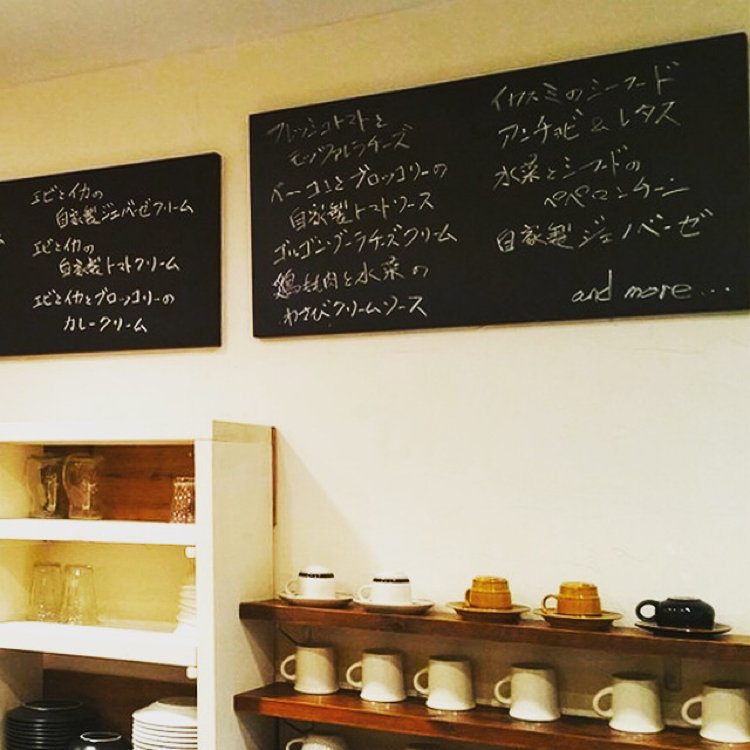 エビとイカの
自家製ジェノバーゼクリーム
エビとイカの
自家製トマトクリーム
エビとイカとブロッコリーの
カレークリーム
フレッシュトマトと
モッツァレラチーズ
ベーコンとブロッコリーの
自家製トマトソース
ゴルゴンゾーラチーズクリーム
鶏もも肉と水菜の
わさびクリームソース
イカスミのシーフード
アンチョビ & レタス
水菜とシーフードの
ペペロンチーニ
自家製ジェノバーゼ
and more...